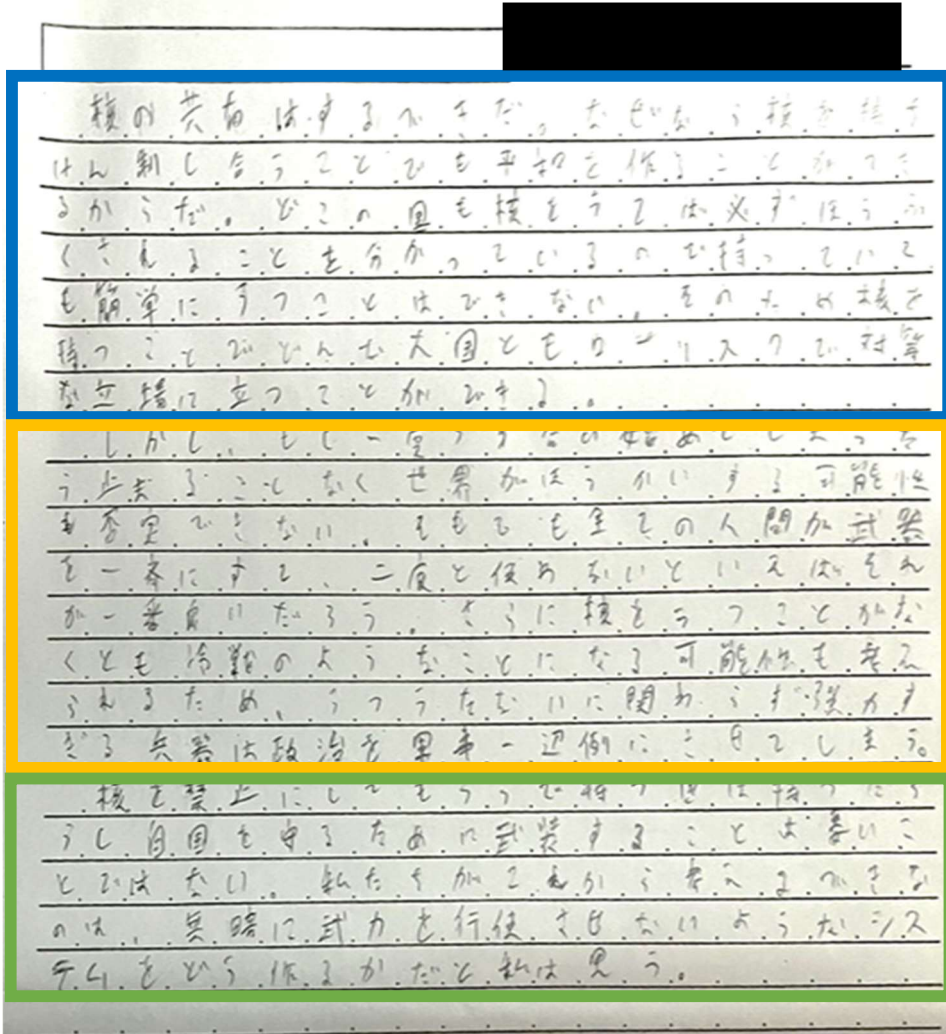 核の共有はするべきだ。なぜなら核を持ち
けん制し合うことでも平和を作ることができ
るからだ。どこの国も核をうてば必ずほうふ
くされることを分かっているので持っていて
も簡単にうつことはできない。そのため核を
持つことでどんな大国ともローリスクで対等
な立場に立つことができる。
しかし、もし一度うち合い始めてしまった
ら止まることなく世界がほうかいする可能性
も否定できない。そもそも全ての人間が武器
を一斉にすて、二度と使わないといえばそれ
が一番良いだろう。さらに核をうつことがな
くとも冷戦のようなことになる可能性も考え
られるため、うつうたないに関わらず強力す
ぎる兵器は政治を軍事一辺倒にさせてしまう。
核を禁止にしてもうらで持つ国は持つだろ
うし自国を守るために武装することは悪いこ
とではない。私たちがこれから考えるべきな
のは、無暗に武力を行使させないようなシス
テムをどう作るかだと私は思う。